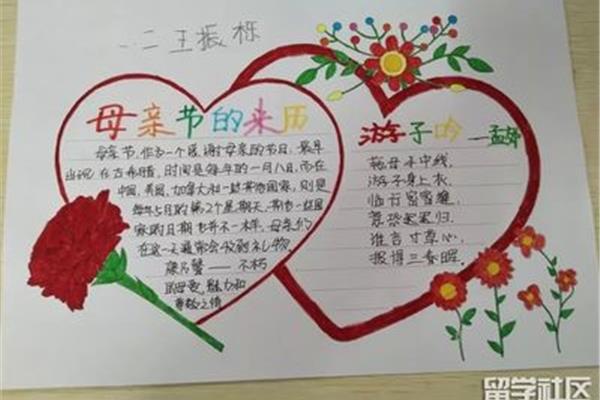 一.二 王振栎
母亲节的来历
母亲节,作为一个感谢母亲的节日,最早
出现在古希腊,时间是每年的一月八日,而在
中国、美国、加拿大和一些其他国家,则是
每年5月的第2个星期天,其他一些国
家的日期也并不一样。母亲们
在这一天通常会收到礼物,
康乃馨——不朽
的母爱,魅力和
尊敬之情
游子吟 —孟郊
慈母手中线,
游子身上衣,
临行密密缝,
意恐迟迟归,
谁言寸草心,
报得三春晖。
留学社区